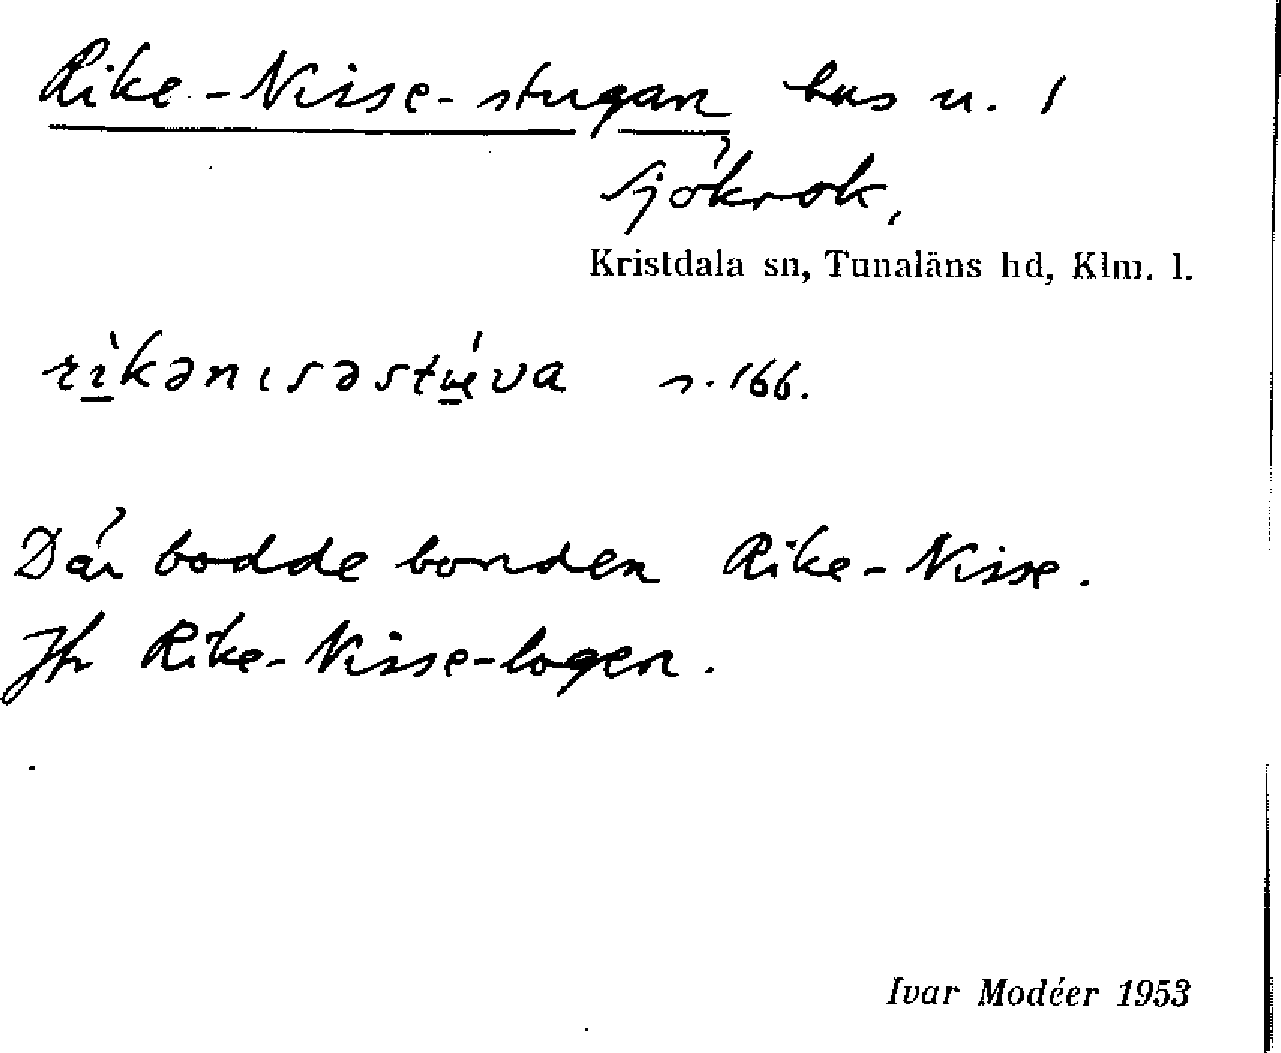 Rike-Nisse-stugan hus u. 1
Sjökrok,
Kristdala sn, Tunaläns hd, Klm. l.
rìkənɩsəstúva s. 166.
Där bodde bonden Rike-Nisse.
Jfr Rike-Nisse-logen.
Ivar Modéer 1953